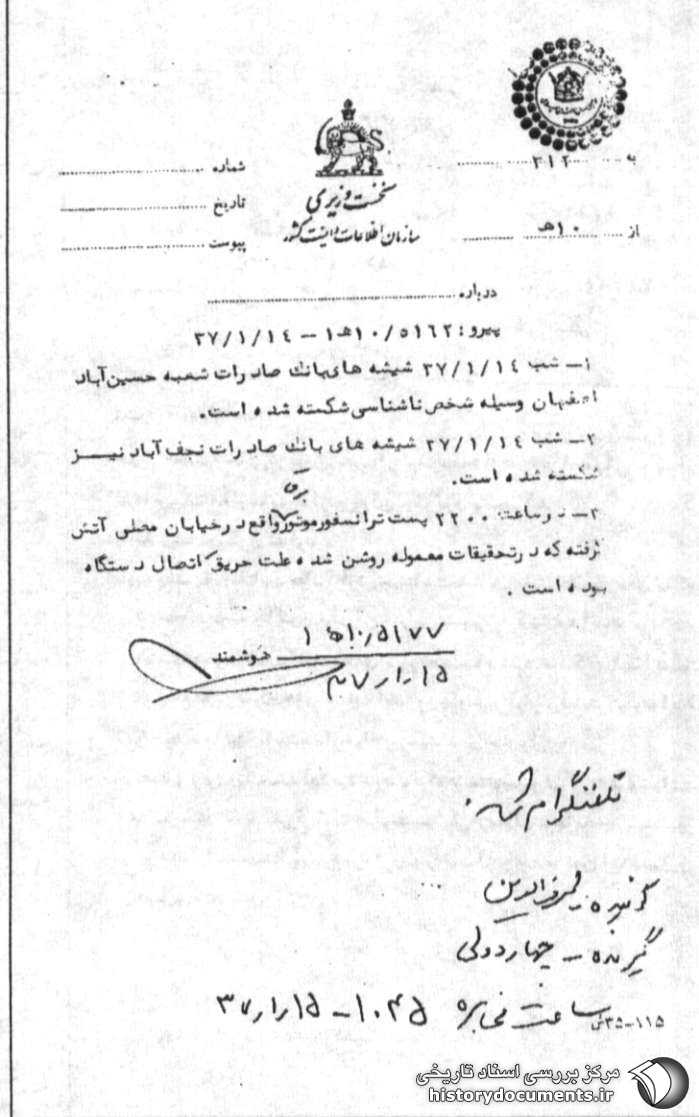 به ۳۱۲
نخست وزیری
شماره
سازمان اطلاعات و امنیت کشور
تاریخ
از ۱۰هـ
پیوست
درباره
پیرو: ۱۰/۵۱۶۲هـ۱ – ۳۷/۱/۱۴
۱– شب ۳۷/۱/۱۴ شیشه های بانک صادرات شعبه حسین آباد
اصفهان وسیله شخص ناشناسی شکسته شده است.
۲– شب ۳۷/۱/۱۴ شیشه های بانک صادرات نجف آباد نیــز
شکسته شده است.
برق
۳– در ساعت ۲۲۰۰ پست ترانسفورموتور واقع در خیابان محلی آتش
گرفته که در تحقیقات معموله روشن شده علت حریق اتصال دستگاه
بوده است.
۱۰/۵۱۷۷هـ ۱
هوشمند
۳۷/۱/۱۵
تلفنگرام شد.
گوینده فیروزالدین
گیرنده – چهاردولی
ساعت مخابره ۱۰۴۵ – ۳۷/۱/۱۵
۱۱۵–۳۵
مرکز بررسی اسناد تاریخی
historydocuments.ir